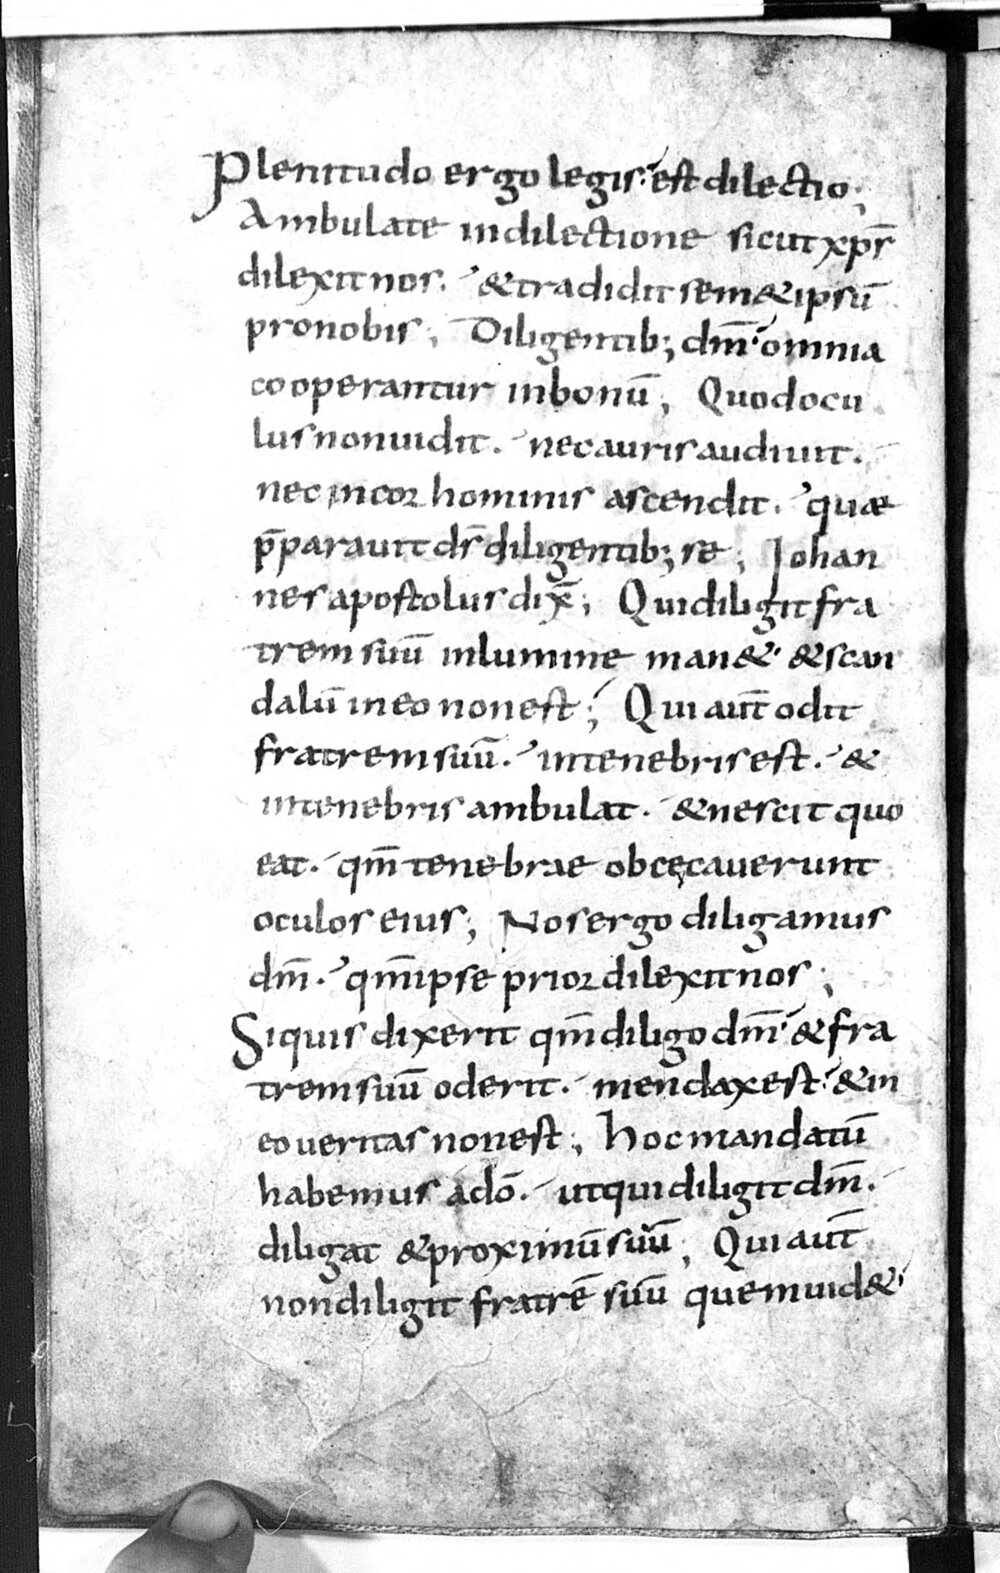 Plenitudo ergo legis. est dilectio;
Ambulate indilectione sicut xp̄s
dilexit nos. & tradidit sem&ipsū
pronobis; Diligentib; dm̄. omnia
cooperantur inbonū; Quodocu
lus nonuidit. nec auris audiuit.
nec incor hominis ascendit. quae
p̄parauit ds̄ diligentib; se; Johan
nes apostolus dix̄; Quidiligit fra
trem suū inlumine man&. & scan
dalū ineo nonest; Qui aut̄ odit
fratrem suū. intenebris est. &
intenebris ambulat. & nescit quo
eat. qm̄ tenebrae obcęcauerunt
oculos eius; Nos ergo diligamus
dm̄. qm̄ ipse prior dilexit nos;
Siquis dixerit qm̄ diligo dm̄. & fra
trem suū oderit. mendax est. & in
eo ueritas nonest; hoc mandatū
habemus adō. ut qui diligit dm̄.
diligat & proximū suū; Qui aut̄
nondiligit fratrē suū quem uid&